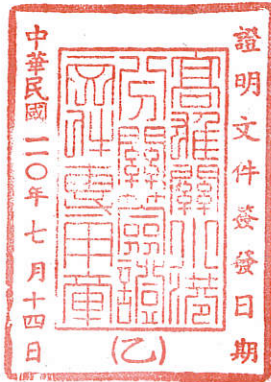 證明文件簽發日期
高雄關小港
分關簽證
文件專用章
(乙)
中華民國一一〇年七月十四日